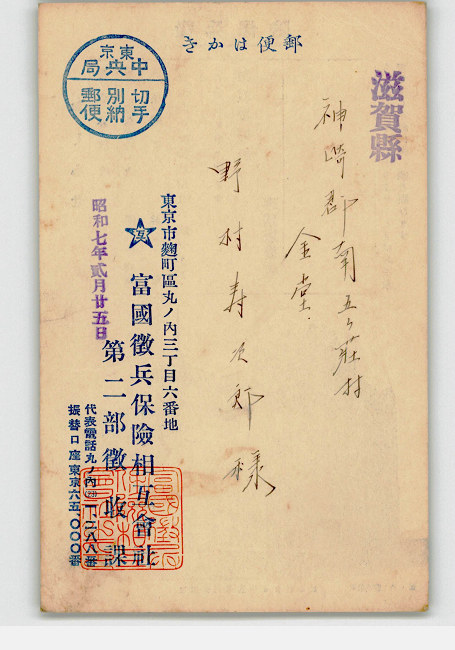 郵便はかき
滋賀縣
神崎郡南五ヶ荘村
金堂
野村寿次郎様
東京
中央局
切手
別納
郵便
東京市麴町區丸ノ內三丁目六番地
富國徵兵保險相互會社
第二部徵收課
代表電話丸ノ內一、二八八番
振替口座東京六五、〇〇〇番
昭和七年貳月廿五日